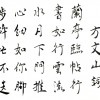 方文山詞
蘭亭臨帖行
書如行雲流
水月下門推
心細如你脚
步碎忙不迭